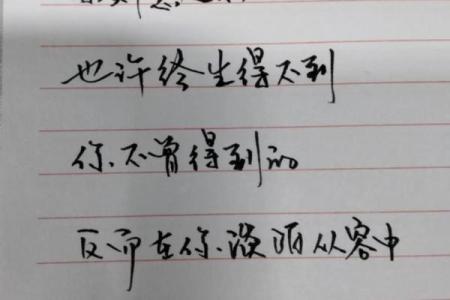 也许终生得不到
你不曾得到的
反而在你淡陌从容中